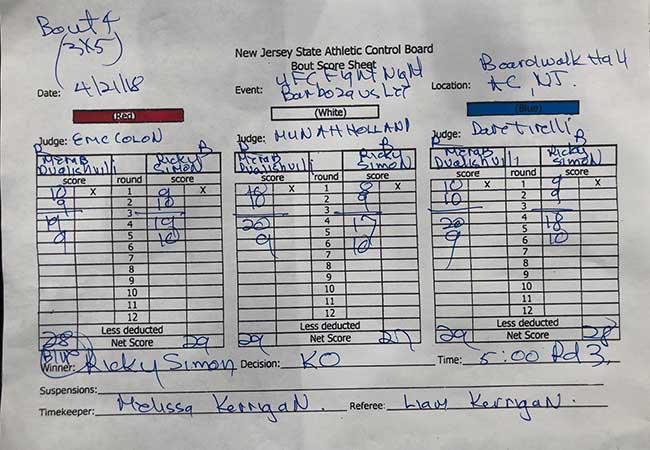 Bout 4
(3X5)
New Jersey State Athletic Control Board
Bout Score Sheet
Date: 4/21/18
Event: UFC Fight Night
Barboza vs Lee
Location: Boardwalk Hall
AC, NJ.
(Red) (White) (Blue)
Judge: Eric Colon Judge: Munah Holland Judge: Dave Tirelli
R B R B R B
Merab Ricky Merab Ricky Merab Ricky
Dvalishvili Simon Dvalishvili Simon Dvalishvili Simon
score round score score round score score round score
10 X 1 9 X 10 X 1 8 X 10 X 1 9 X
9 2 10 10 2 9 10 2 9
3 3 3
19 4 19 20 4 17 20 4 18
9 5 10 9 5 10 9 5 10
6 6 6
7 7 7
8 8 8
9 9 9
10 10 10
11 11 11
12 12 12
Less deducted Less deducted Less deducted
28 Net Score 29 29 Net Score 27 29 Net Score 28
Blue
Winner: Ricky Simon Decision: KO Time: 5:00 Rd 3,
Suspensions:
Timekeeper: Melissa Kerrigan. Referee: Liam Kerrigan.